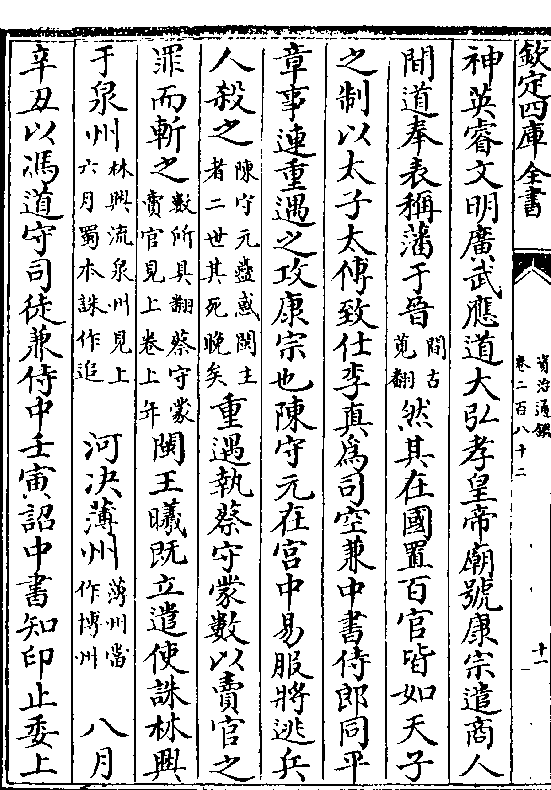 欽定四庫全書
資治通鑑
卷二百八十二
十一
神英睿文明廣武應道大弘孝皇帝廟號康宗遣商人
間道奉表稱藩于晉
間古
莧翻
然其在國置百官皆如天子
之制以太子太傅致仕李真為司空兼中書侍郎同平
章事連重遇之攻康宗也陳守元在宮中易服將逃兵
人殺之
陳守元蠱惑閩主
者二世其死晚矣
重遇執蔡守蒙數以賣官之
罪而斬之
數所具翻蔡守蒙
賣官見上卷上年
閩王曦既立遣使誅林興
于泉州
林興流泉州見上
六月蜀本誅作追
河決薄州
薄州當
作博州
八月
辛丑以馮道守司徒兼侍中壬寅詔中書知印止委上